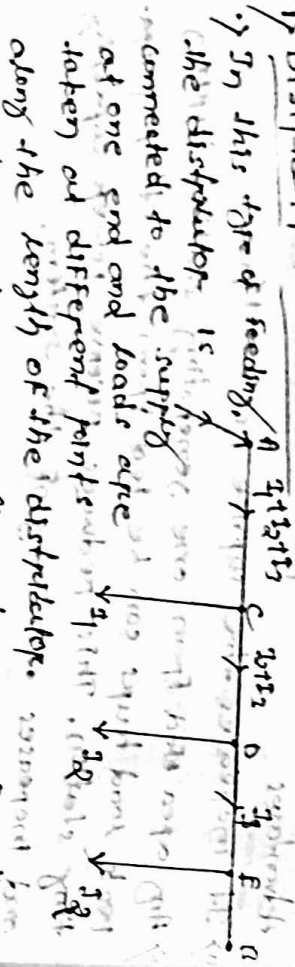 .) In this type of feeding,
the distributor is
connected to the supply
at one end and loads are
taken at different points
along the length of the distributor.
A I1+I2+I3 C I2+I3 D I3 E B
I1 I2 I3